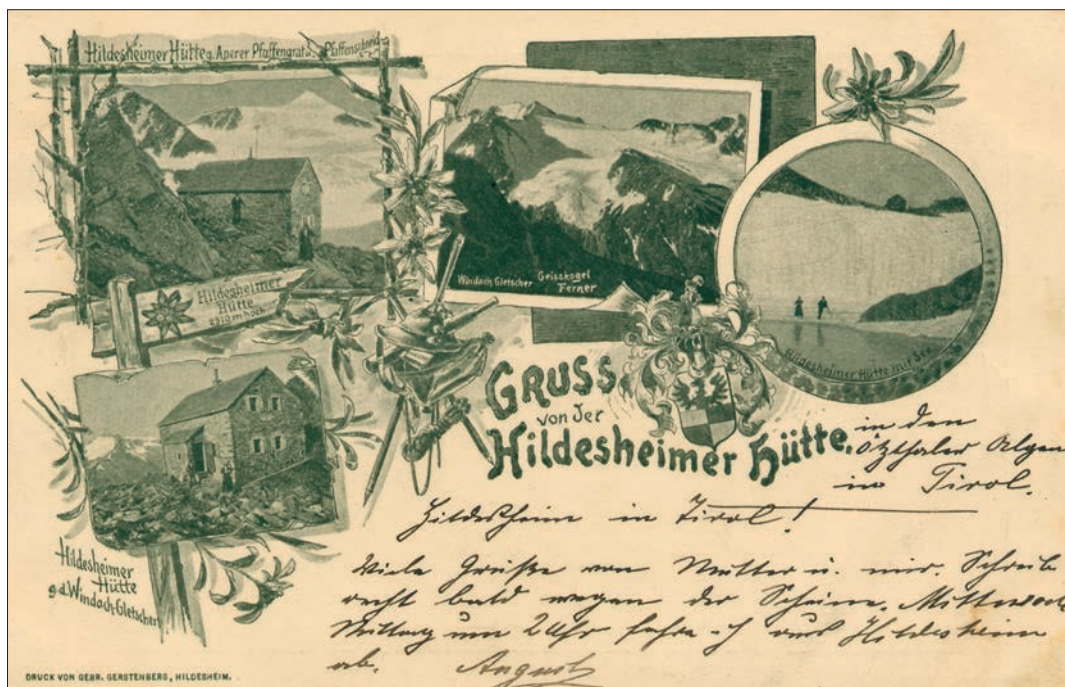 Hildesheimer Hütte g. Aperer Pfaffengrat u. Pfaffenschneid
Hildesheimer
Hütte
2910 m hoch
Windach Gletscher
Geisskogel
Ferner
Hildesheimer Hütte mit See
GRUSS
von der
Hildesheimer Hütte,
in den
Ötzthaler Alpen
in Tirol.
Hildesheim in Tirol!
Hildesheimer
Hütte
g. d. Windach-Gletscher
Viele Grüße von Mutter u. mir. Schreib
recht bald wegen der Scheine. Mittwoch
Mittag um 2 Uhr fahre ich aus Hildesheim
ab. August
DRUCK VON GEBR. GERSTENBERG, HILDESHEIM.